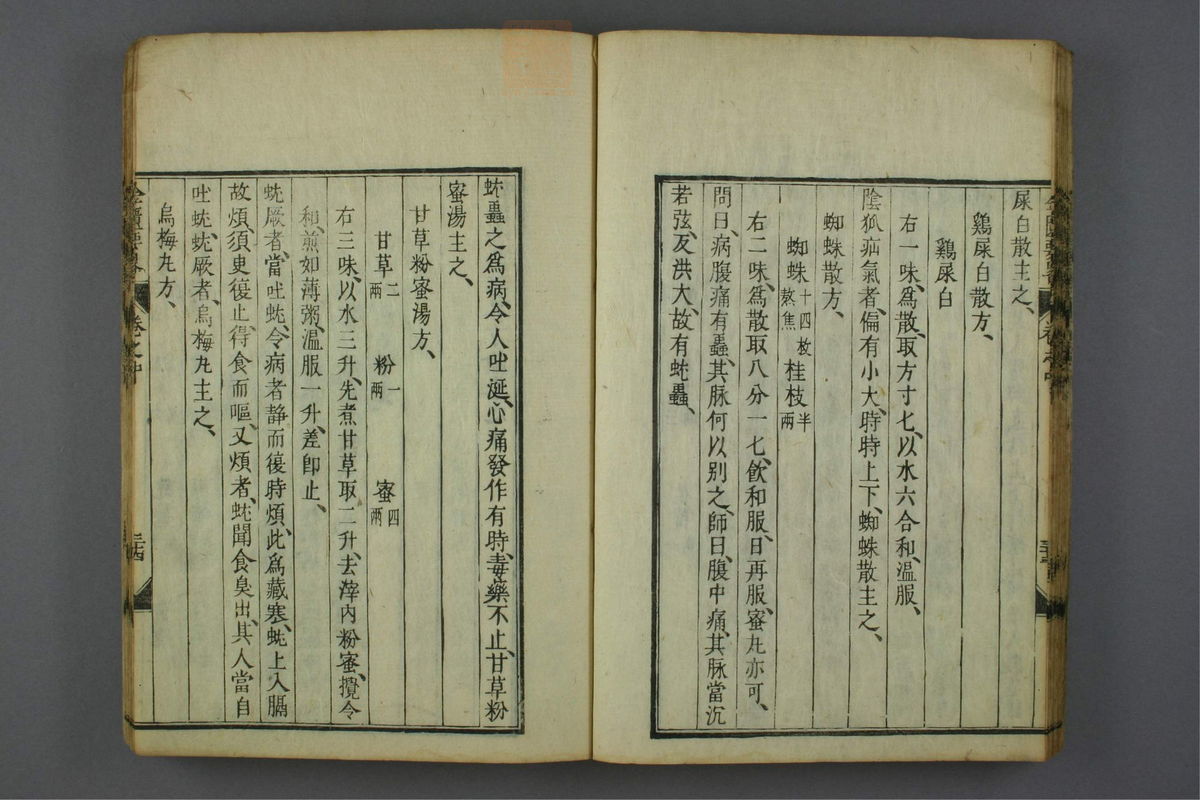 屎白散主之、
鷄屎白散方、
鷄屎白
右一味、爲散、取方寸匕、以水六合和、溫服、
陰狐疝氣者、偏有小大、時時上下、蜘蛛散主之、
蜘蛛散方、
蜘蛛十四枚熬焦 桂枝半兩
右二味、爲散、取八分一匕、飮和服、日再服、蜜丸亦可、
問曰、病腹痛有蟲、其脉何以别之、師曰、腹中痛、其脉當沉
若弦、反洪大、故有蚘蟲、
蚘蟲之爲病、令人吐涎、心痛發作有時、毒藥不止、甘草粉
蜜湯主之、
甘草粉蜜湯方、
甘草二兩 粉一兩 蜜四兩
右三味、以水三升、先煮甘草取二升、去滓、内粉蜜、攪令
和、煎如薄粥、溫服一升、差卽止、
蚘厥者、當吐蚘、令病者静而復時煩、此爲藏寒、蚘上入膈
故煩、須臾復止、得食而嘔、又煩者、蚘聞食臭出、其人當自
吐蚘、蚘厥者、烏梅丸主之、
烏梅丸方、
金匱要略 卷之中 三十四